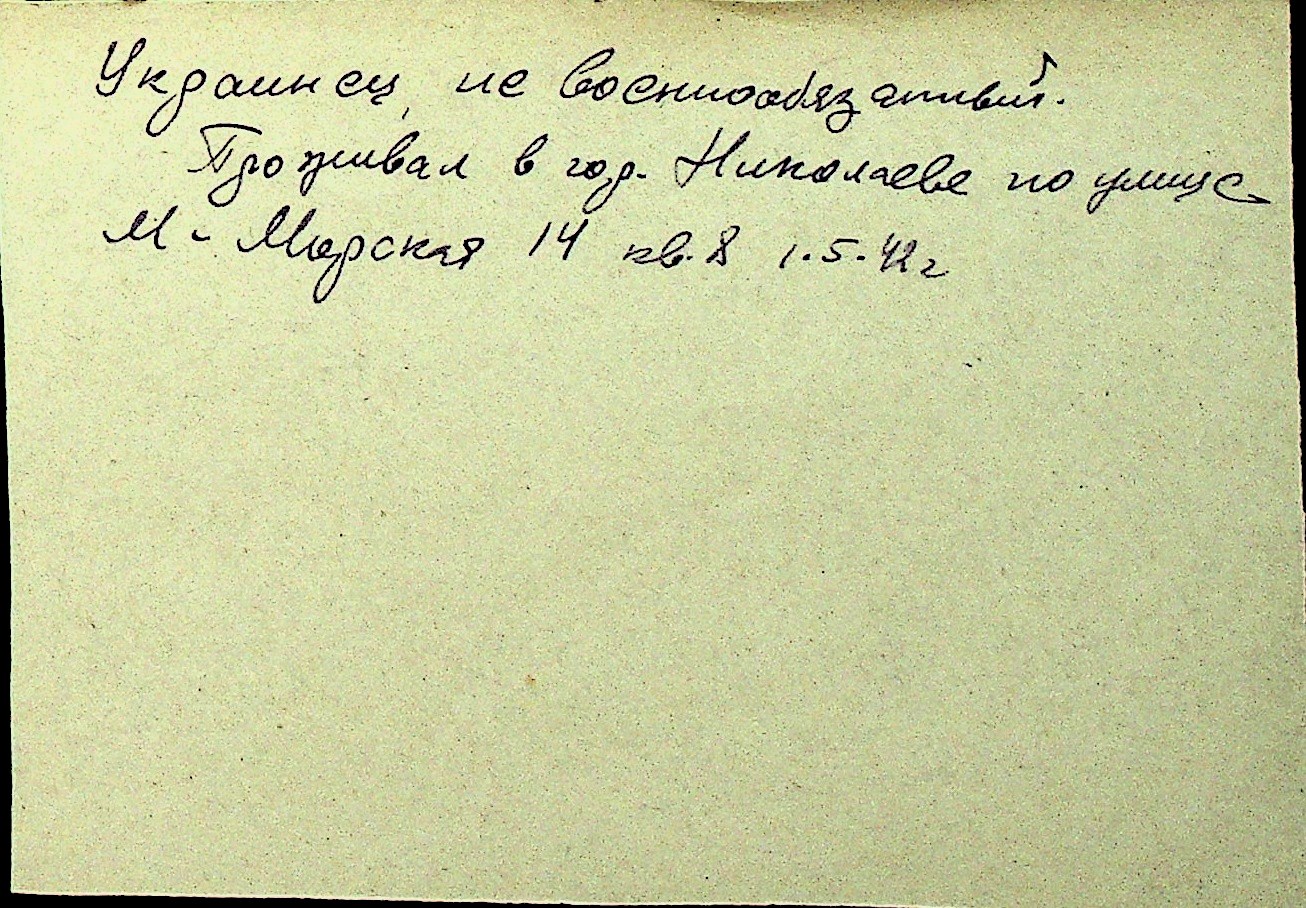 Украинец, не военнообязанный.
Проживал в гор. Николаеве по улице
М-Морская 14 кв. 8 1.5.42 г